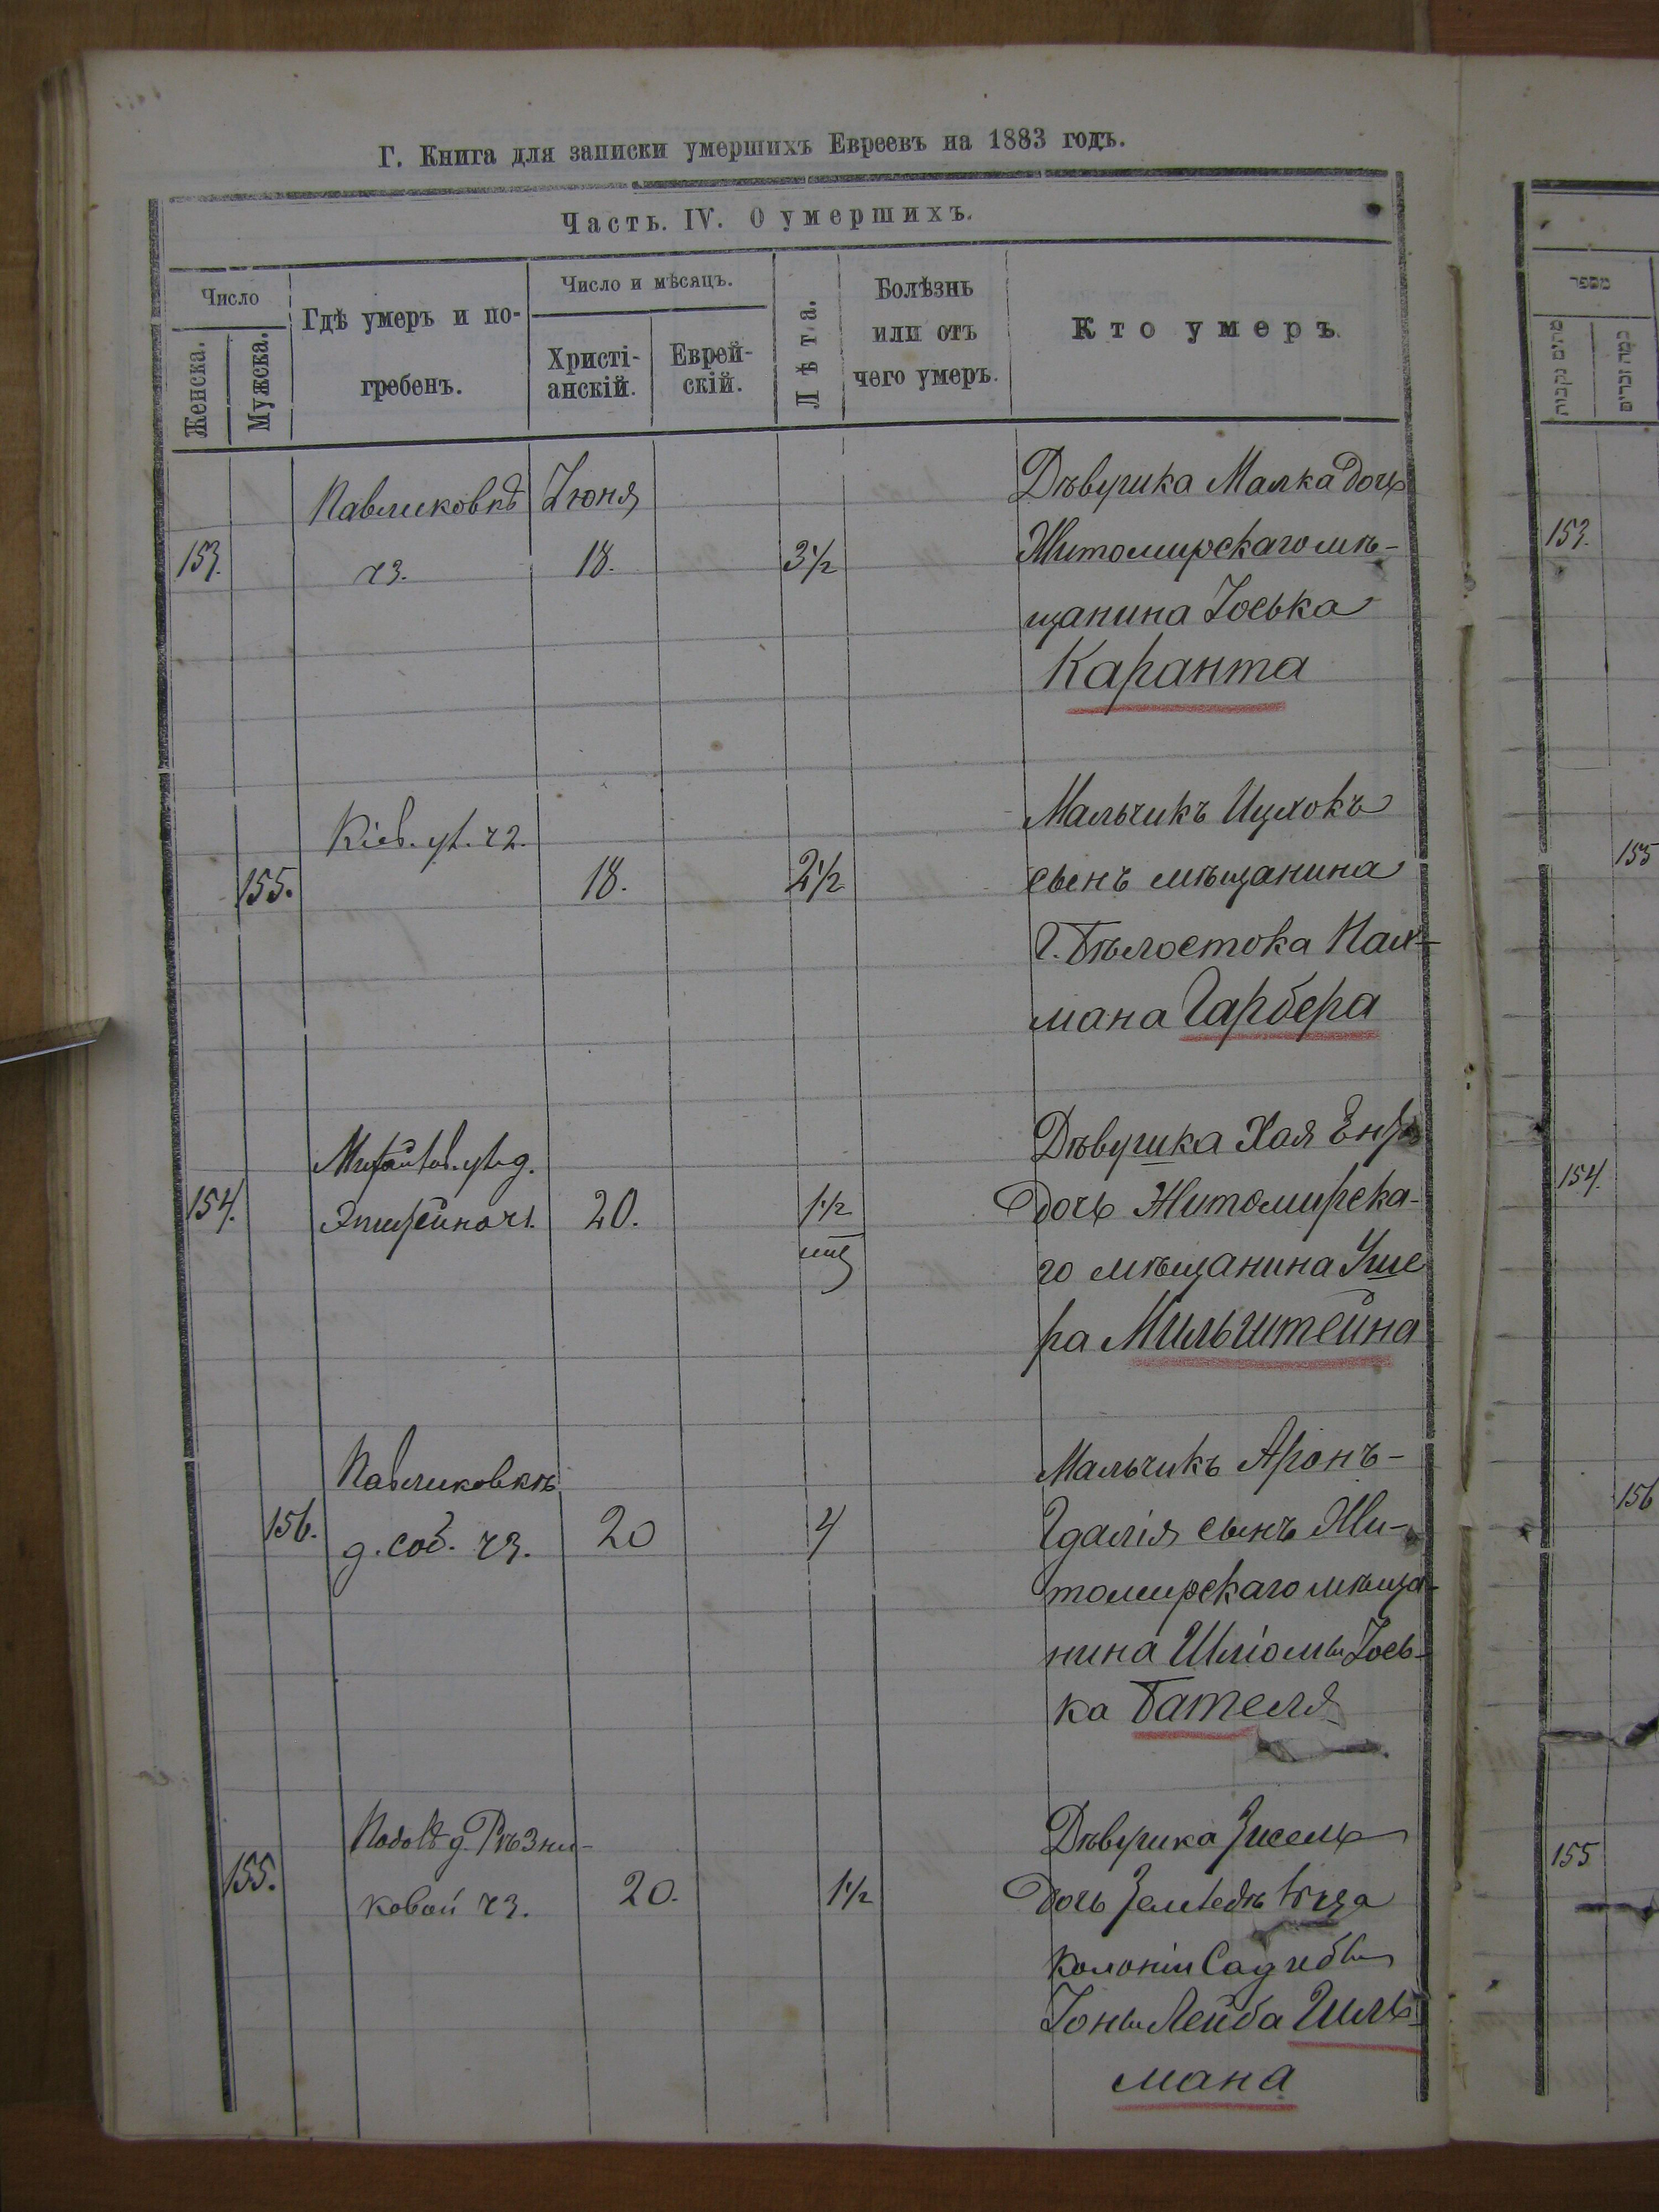 Г. Книга для записки умершихъ Евреевъ на 1883 годъ.
Часть. IV. О умершихъ.
Число
Женска.
Мужска.
Гдѣ умеръ и по-
гребенъ.
Число и мѣсяцъ.
Христі-
анскій.
Еврей-
скій.
Лѣта.
Болѣзнь
или отъ
чего умеръ.
Кто умеръ.
153.
Павликовкѣ
ч3.
Іюня
18.
3 1/2
Дѣвушка Малка дочь
Житомирскаго мѣ-
щанина Іоська
Каранта
155.
Кіев. ул. ч2.
18.
2 1/2
Мальчикъ Ицхокъ
сынъ мѣщанина
г. Бѣлостока Нах-
мана Гарбера
154.
ул. д.
ч1.
20.
1 1/2
Дѣвушка Хая
дочь Житомирска-
го мѣщанина Уше
ра Мильштейна
156.
Павликовкѣ
д. соб. ч3.
20
4
Мальчикъ Аронъ-
Гдалія сынъ Жи-
томирскаго мѣща-
нина Шліомы Іось-
ка Бателя
155.
Подолѣ д. Рѣзни-
ковой ч3.
20.
1 1/2
Дѣвушка Зисель
дочь Земледѣльца
колоніи
Іоны Лейба Гиль-
мана
מספר
מתים נקבות
כמה זכרים
153.
155
154.
156
155